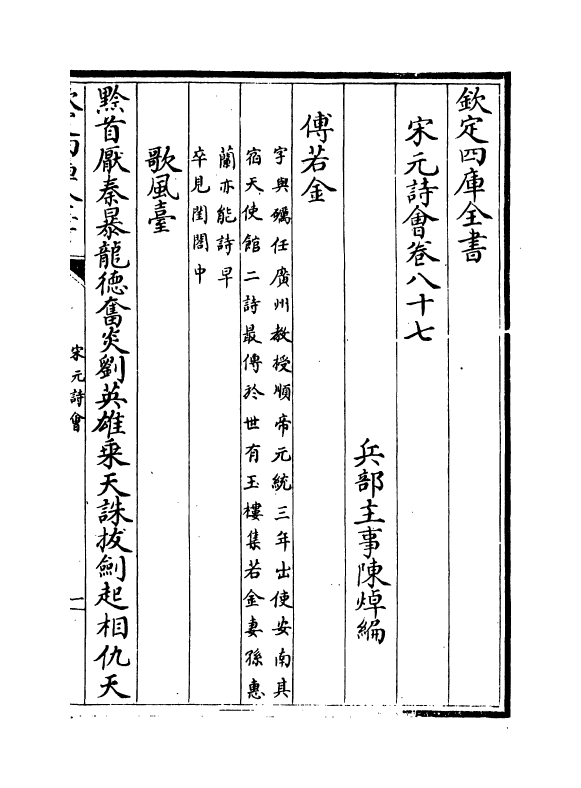 欽定四庫全書
宋元詩會卷八十七
兵部主事陳焯編
傅若金
字與礪任廣州教授順帝元統三年出使安南其
宿天使館二詩最傳於世有玉樓集若金妻孫蕙
蘭亦能詩早
卒見閨閤中
歌風臺
黔首厭秦暴龍德奮炎劉英雄乘天誅拔劍起相仇天
宋元詩會
一